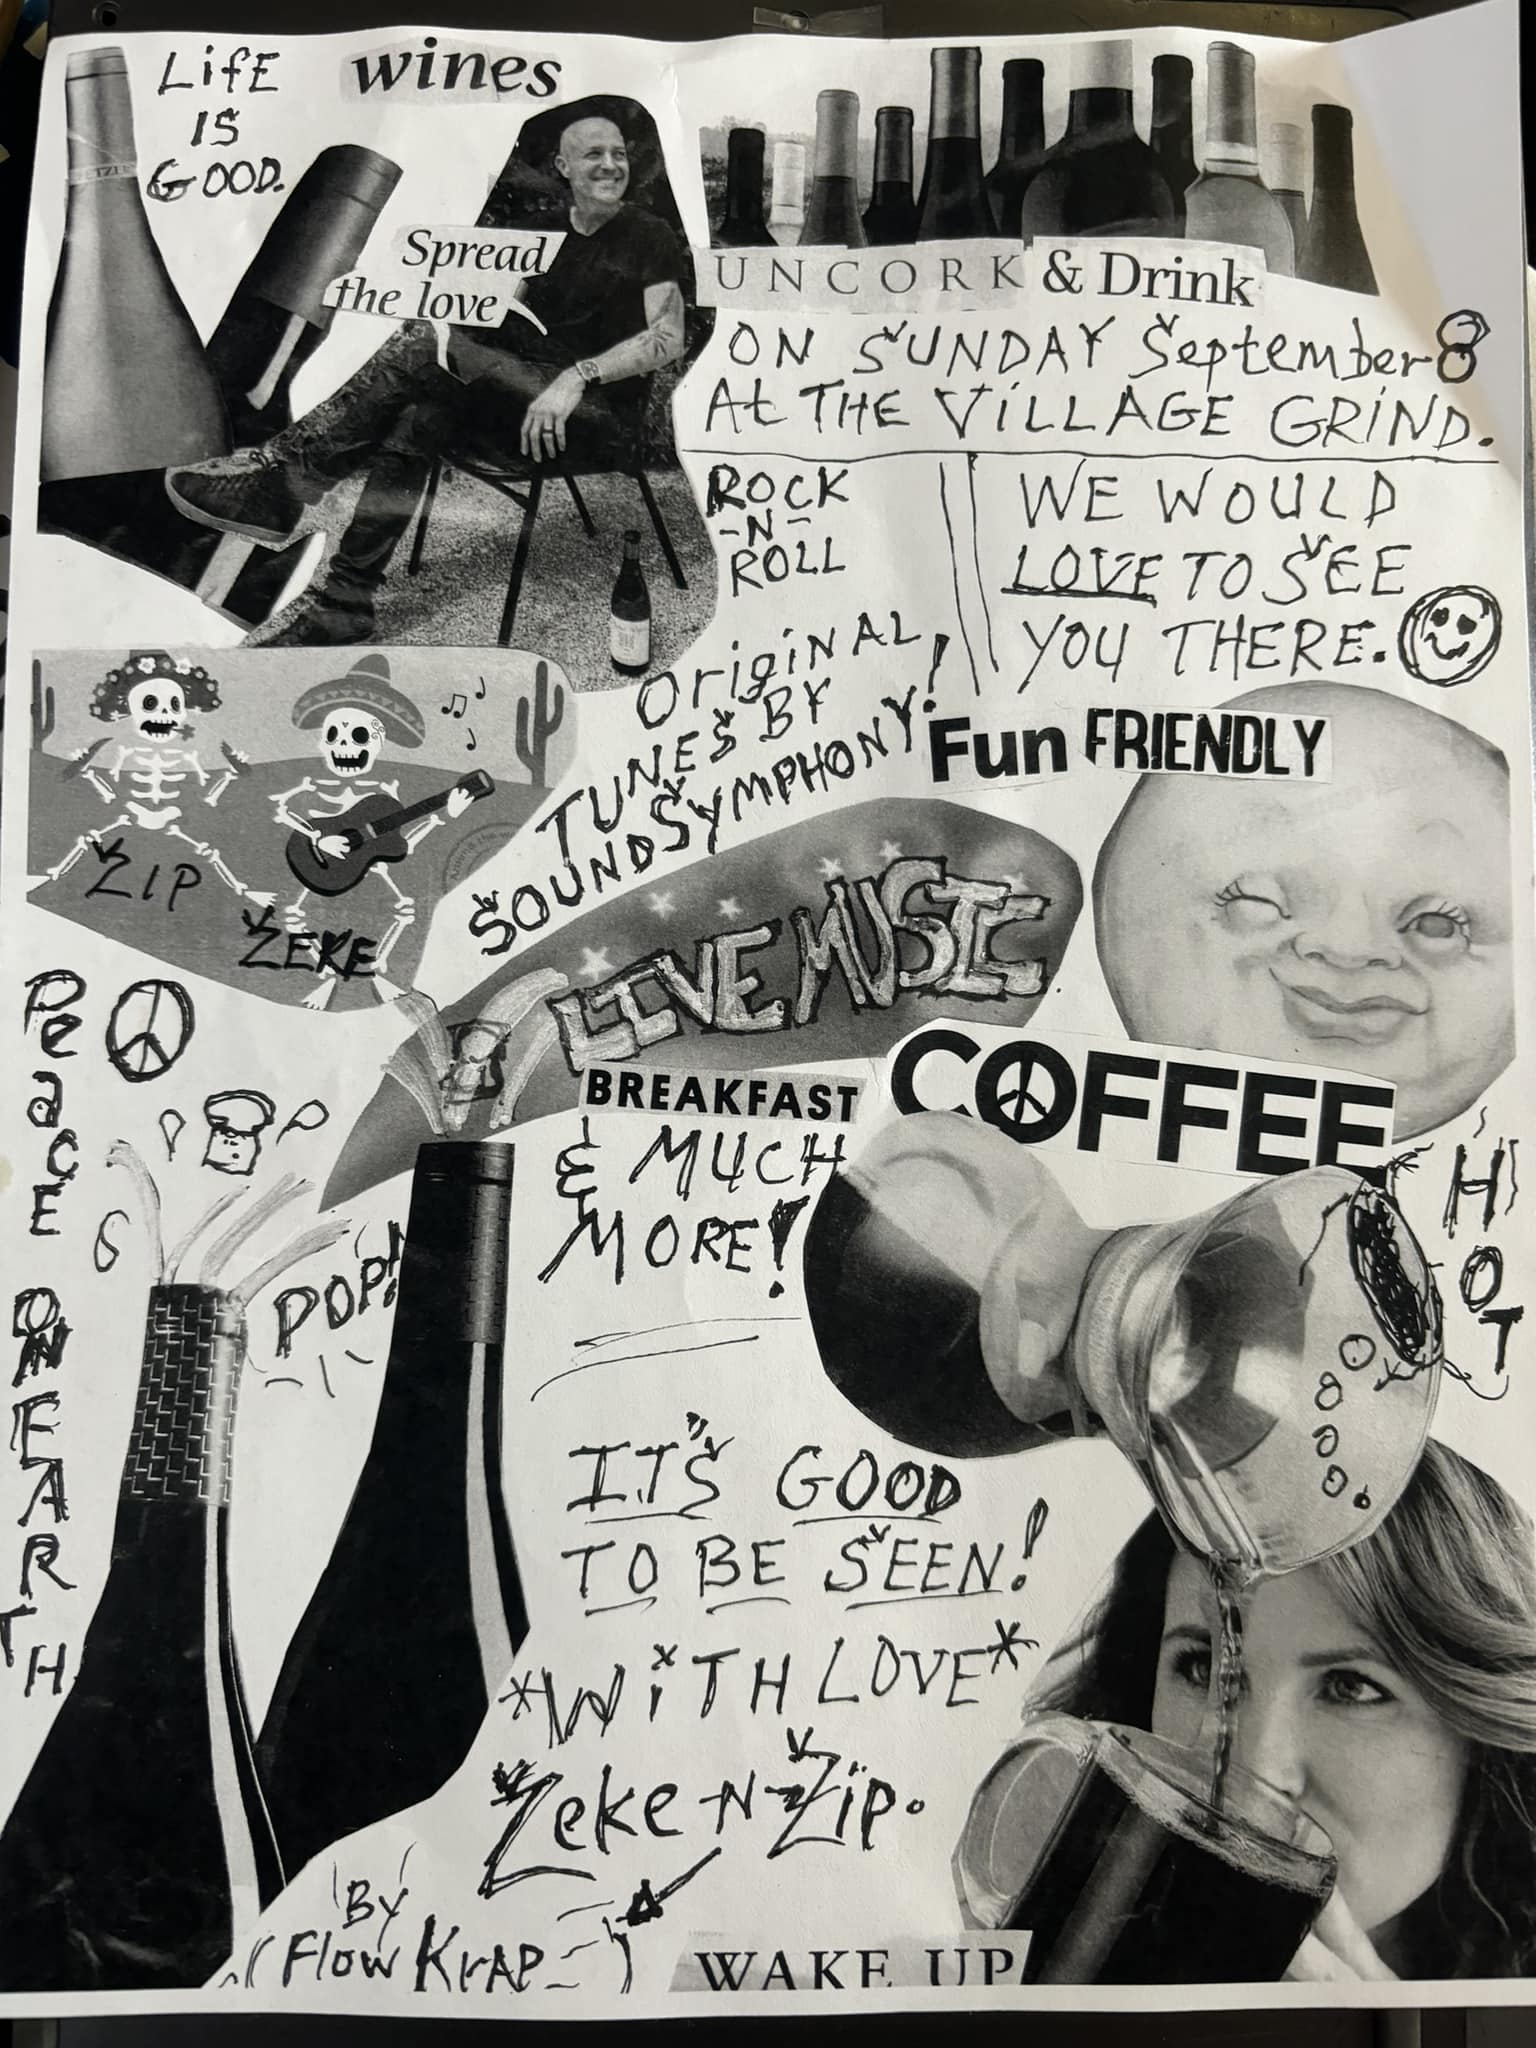 LifE
IS
GOOD.
wines
Spread
the love
UNCORK & Drink
ON SUNDAY September 8
At THE ViLLAGE GRiND.
ROCK
-N-
ROLL
WE WOULD
LOVE TO SEE
YOU THERE.
OriginAL
TUNES BY
SOUNDSYMPHONY!
Fun FRIENDLY
ZIP
ZEKE
LIVE MUSIC
PeacE ON EARTH
BREAKFAST
COFFEE
& MUCH
MORE!
HOT
POP!
IT'S GOOD
TO BE SEEN!
*WiTH LOVE*
Zeke -N- Zip.
By
(Flow KrAP)
WAKE UP